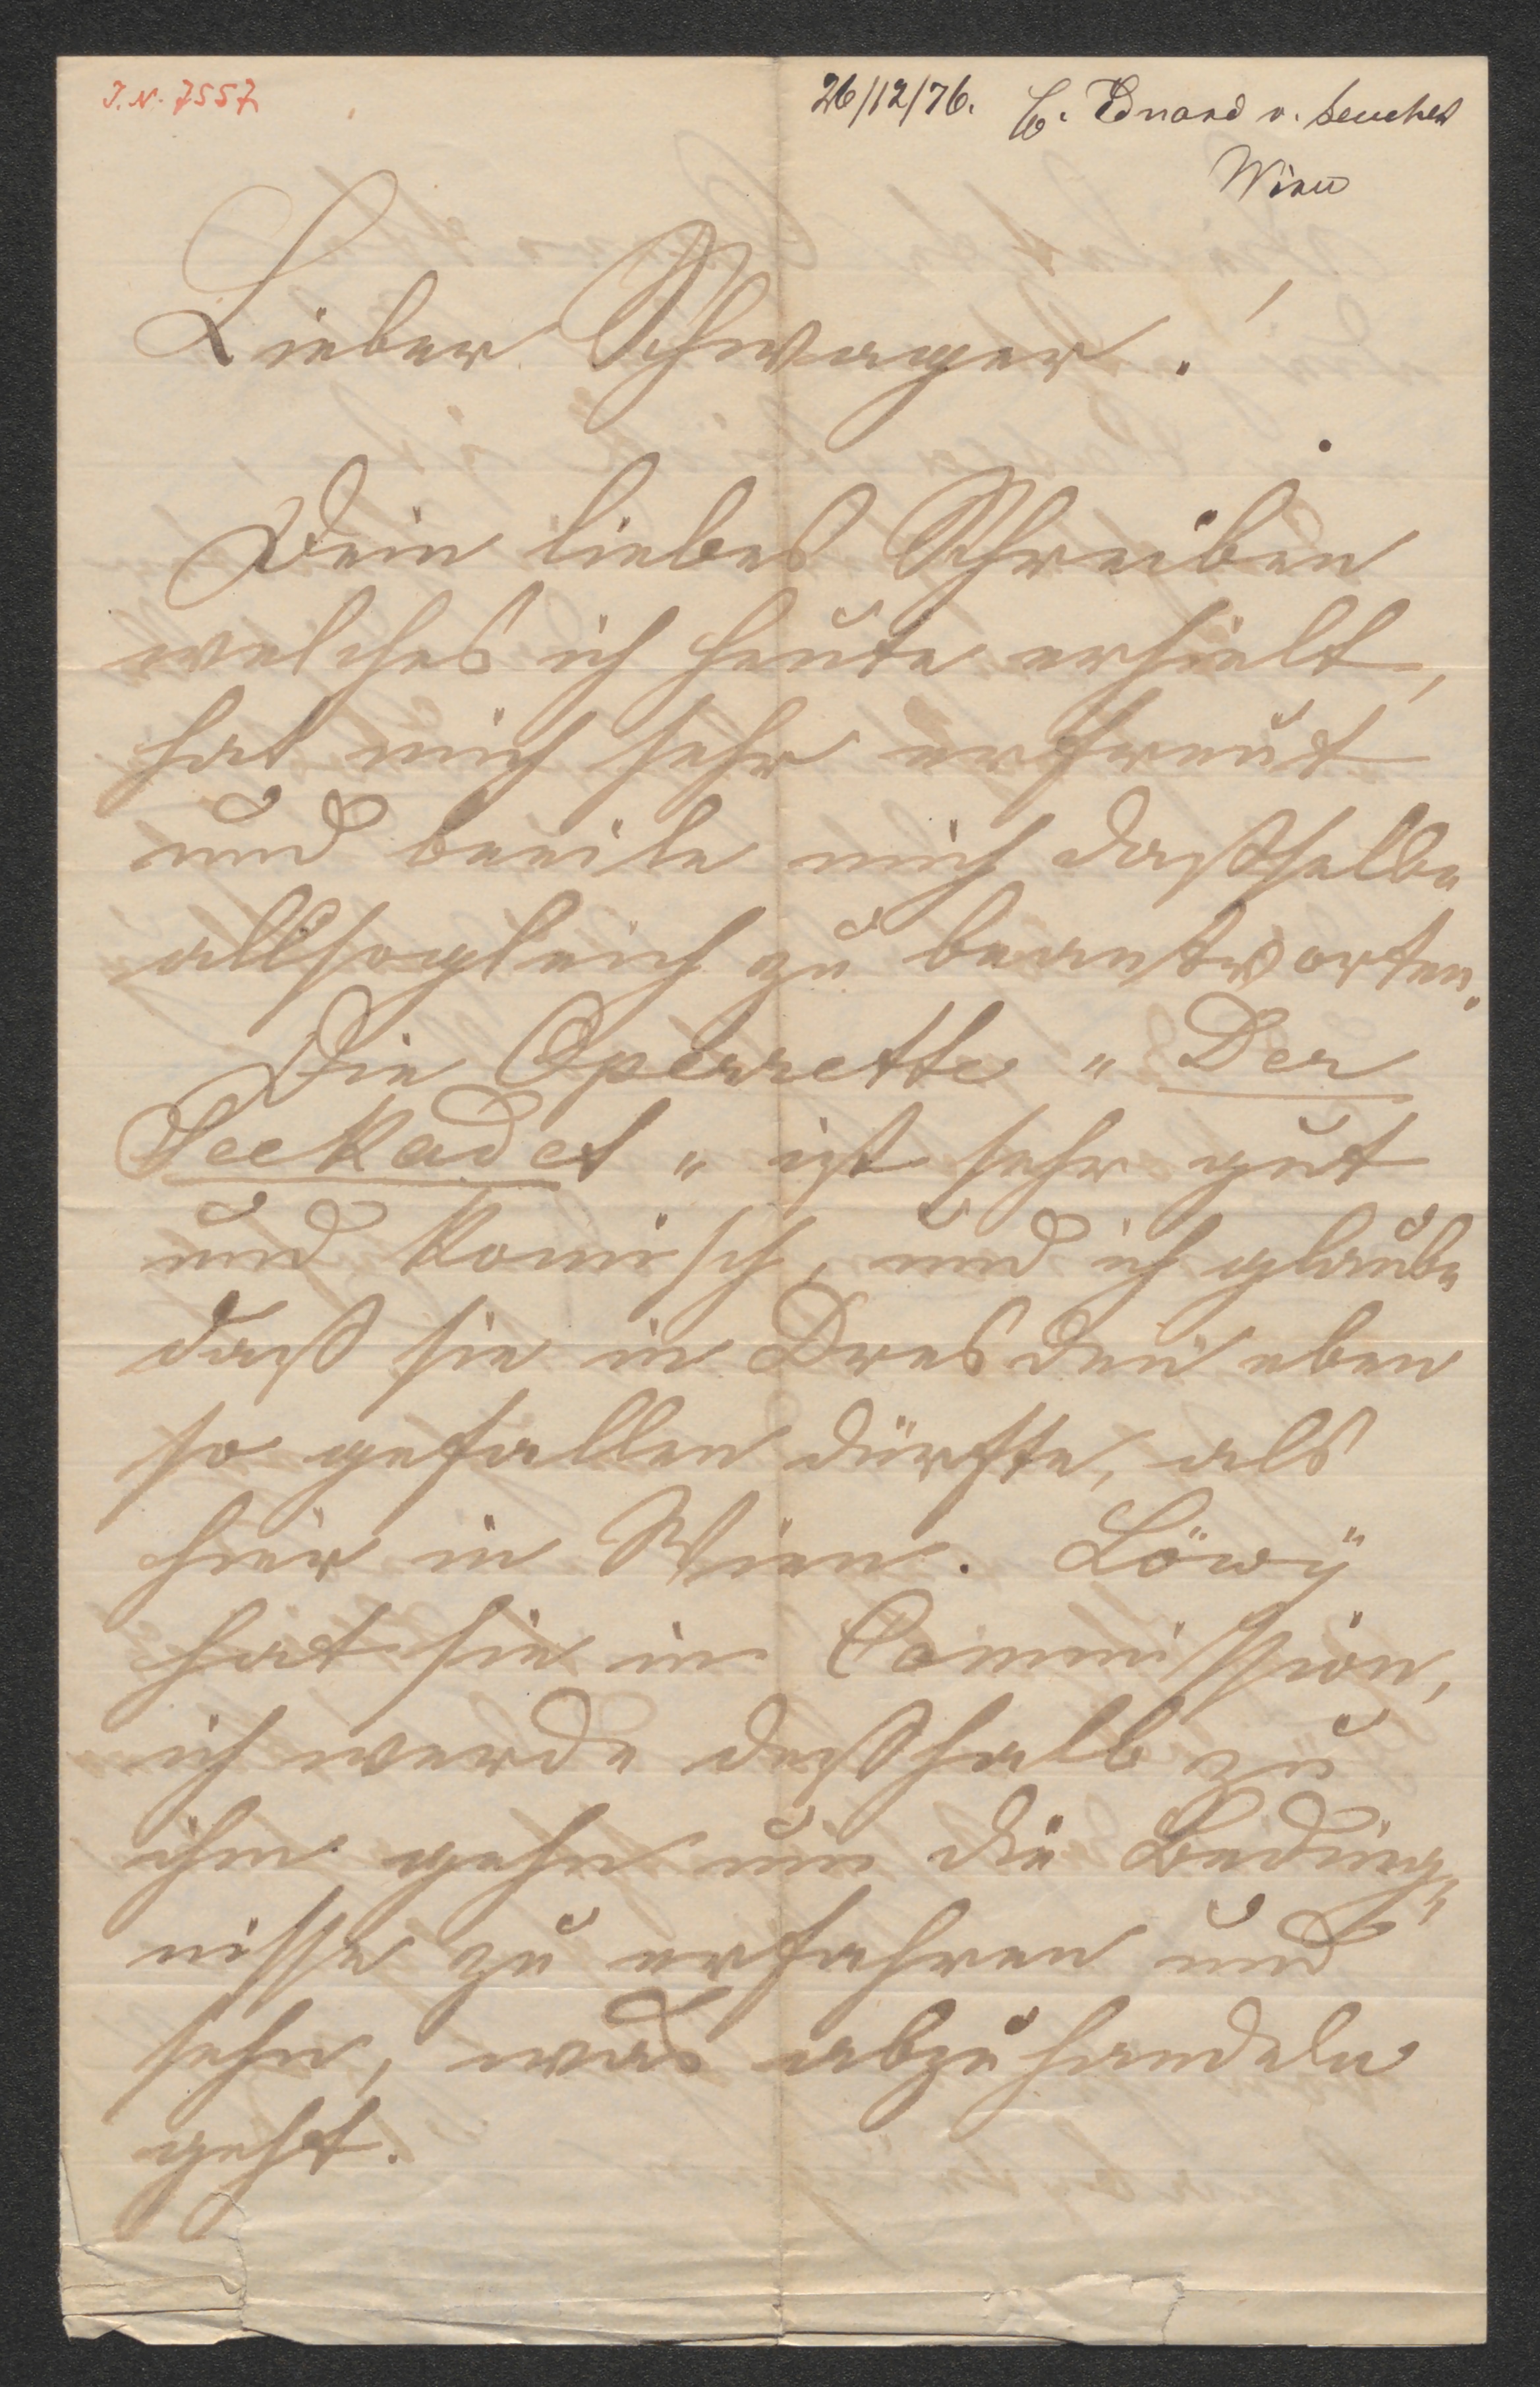 J.N. 7557
26/12/76. C. Eduard v. 
Wien
Lieber Schwager!
Dein liebes Schreiben
welches ich heute erhielt,
hat mich sehr erfreut
und beeile mich dasselbe
allsogleich zu beantworten.
Die Operrette „Der
Seekadet„ ist sehr gut
und komisch, und ich glaube
daß sie in Dresden eben
so gefallen dürfte, als
hier in Wien. Löwÿ
hat sie in Commission,
ich werde deßhalb zu
ihm gehn um die Beding„
nisse zu erfahren und
sehn, was abzuhandeln
geht.